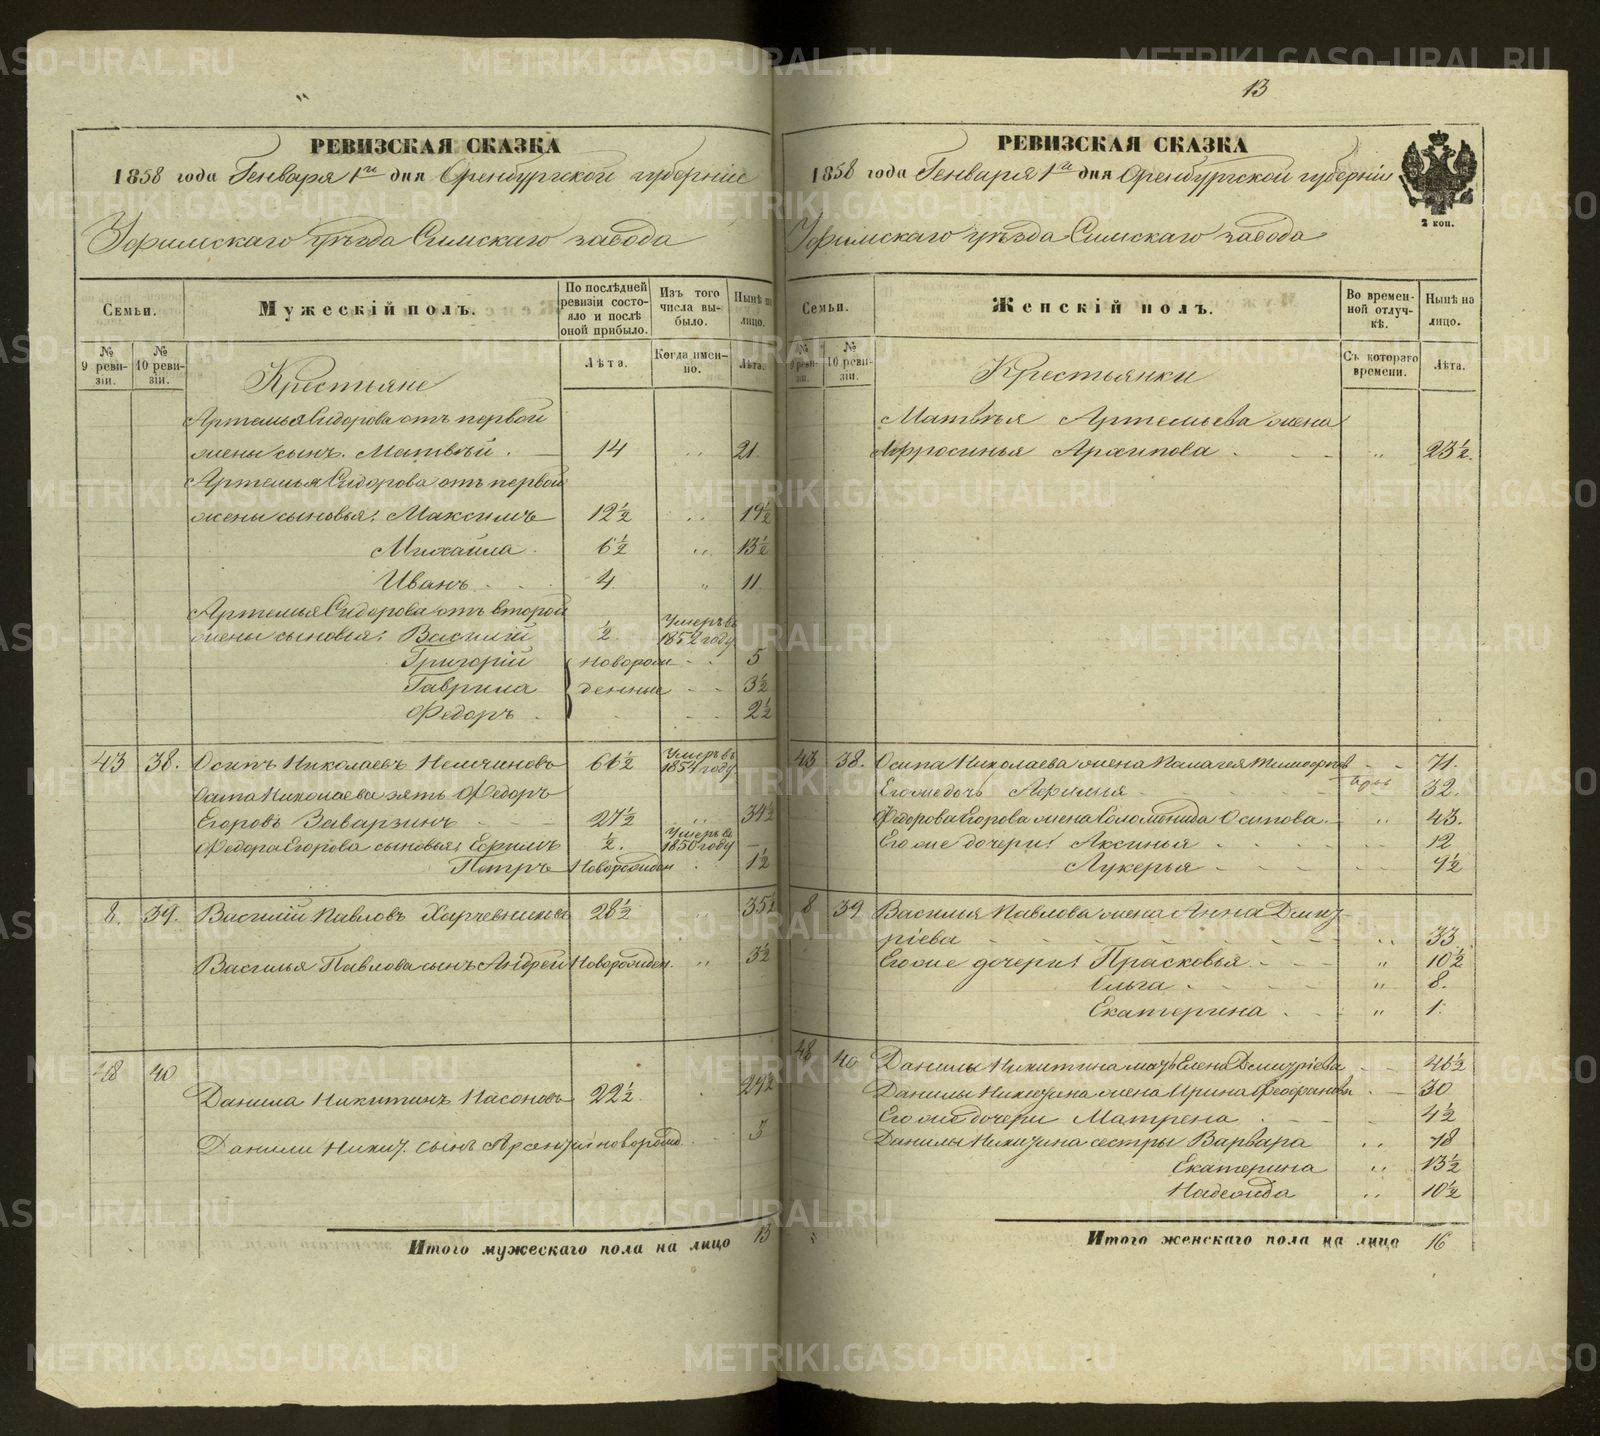 13
РЕВИЗСКАЯ СКАЗКА
1858 года Генваря 1го дня Оренбургской губернiи
Уфимскаго уѣзда Симскаго завода
Семьи.
Мужескiй полъ.
По послѣдней ревизiи состояло и послѣ оной прибыло.
Изъ того числа выбыло.
Нынѣ на лицо.
№ 9 ревизiи.
№ 10 ревизiи.
Крестьяне
Лѣта.
Когда именно.
Лѣта.
Артемья Сидорова отъ первой
жены сынъ. Матвѣй. 14 21.
Артемья Сидорова отъ первой
жены сыновья: Максимъ 12½ 19½
Михайла 6½ 13½
Иванъ 4 11
Артемья Сидорова отъ второй
жены сыновья: Василiй ½ Умеръ въ 1852 году
Григорiй новорож 5
Гаврила денные 3½
Федоръ 2½
43 38. Осипъ Николаевъ Немчиновъ 66½ Умеръ въ 1854 году
Осипа Николаева зять Федоръ
Егоровъ Заварзинъ 27½ 34½
Федора Егорова сыновья: Ефимъ ½. Умеръ въ 1850 году
Петръ Новорожден 1½
8. 39. Василiй Павловъ Харчевниковъ 28½ 35½
Василья Павлова сынъ Андрей Новорожден. 3½
48 40
Данила Никитинъ Насоновъ 22½ 29½
Данилы Никит. сынъ Арсентiй новорожд 3
Итого мужескаго пола на лицо 13
РЕВИЗСКАЯ СКАЗКА
1858 года Генваря 1го дня Оренбургской губернiи
2 коп.
Уфимскаго уѣзда Симскаго завода
Семьи.
Женскiй полъ.
Во временной отлучкѣ.
Нынѣ на лицо.
№ 9 ревизiи.
№ 10 ревизiи.
Крестьянки
Съ котораго времени.
Лѣта.
Матвѣя Артемьева жена
Афросинья Архипова 23½.
43 38. Осипа Николаева жена Палагея 71.
Его же дочь Афимья 32.
Федорова Егорова жена Соломонида Осипова 43.
Его же дочери: Аксинья 12
Лукерья 4½
8 39 Василья Павлова жена Анна Дмит-
рiева 33
Его же дочери: Прасковья 10½
Ольга 8.
Екатерина 1
48 40 Данилы Никитина мать Елена Дмитрiева 46½
Данилы Никитина жена Ирина Феофанова 30
Его же дочери Матрена 4½
Данилы Никитина сестры Варвара 18
Екатерина 13½
Надежда 10½
Итого женскаго пола на лицо 16
METRIKI.GASO-URAL.RU